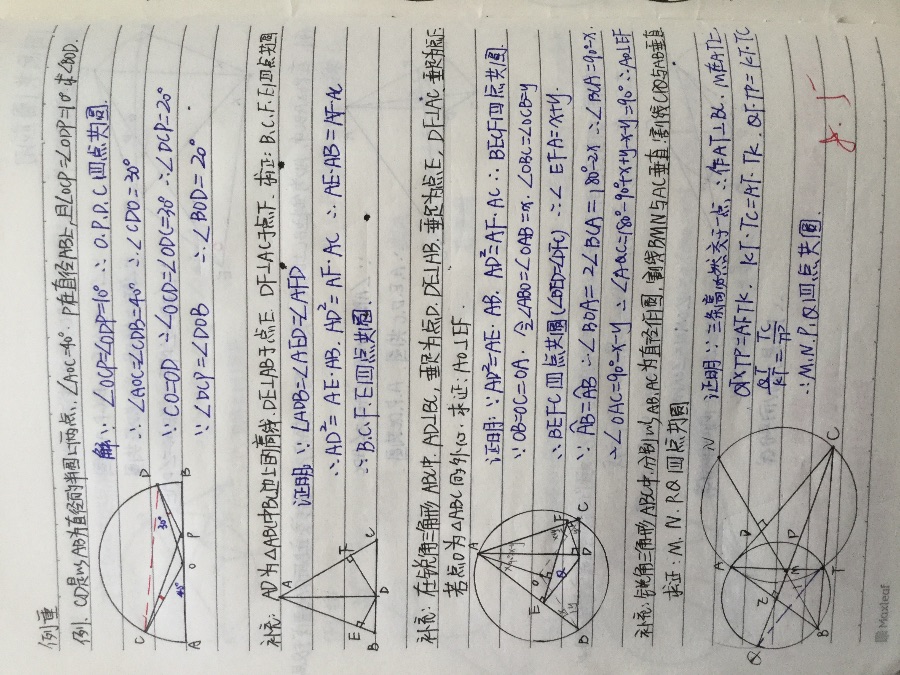 例重
例. C、D是以AB为直径的半圆上两点, ∠AOC=40°. P在直径AB上, 且∠OCP=∠ODP=10° 求∠BOD.
解: ∵ ∠OCP=∠ODP=10° ∴ O.P.D.C 四点共圆
∴ ∠AOC=∠CDB=40° ∴ ∠CDO=30°
∵ CO=OD ∴ ∠OCD=∠ODC=30° ∴ ∠DCP=20°
∵ ∠DCP=∠DOB ∴ ∠BOD=20°
补充: AD为△ABC中BC边上的高线. DE⊥AB于点E. DF⊥AC于点F. 求证: B.C.F.E四点共圆
证明: ∵ ∠ADB=∠AED=∠AFD
∴ AD²=AE·AB. AD²=AF·AC ∴ AE·AB=AF·AC
∴ B.C.F.E四点共圆.
补充: 在锐角三角形ABC中. AD⊥BC, 垂足为点D. DE⊥AB. 垂足为点E, DF⊥AC 垂足为点F.
若点O为△ABC的外心. 求证: AO⊥EF
证明: ∵ AD²=AE·AB. AD²=AF·AC ∴ BECF四点共圆.
∵ OB=OC=OA. 令∠ABO=∠OAB=x. ∠OBC=∠OCB=y
∵ BEFC四点共圆 (∠DED=∠DFC) ∴ ∠EFA=x+y.
∵ AB=AB ∴ ∠BOA=2∠BCA=180°-2x ∴ ∠BCA=90°-x.
∴ ∠OAC=90°-x-y ∴ ∠AQC=180°-90°+x+y-x-y=90° ∴ AO⊥EF
补充: 锐角三角形ABC中. 分别以AB. AC为直径作圆, 割线BMN与AC垂直. 割线CPQ与AB垂直
求证: M. N. P. Q四点共圆
证明: ∵ 三条高必然交于一点 ∴ 作AT⊥BC. M在AT上
QT×TP=AT·TK. KT·TC=AT·TK. QT·TP=KT·TC
QT/KT=TC/TP
∴ M.N.P.Q四点共圆.
8.5
Maxleaf